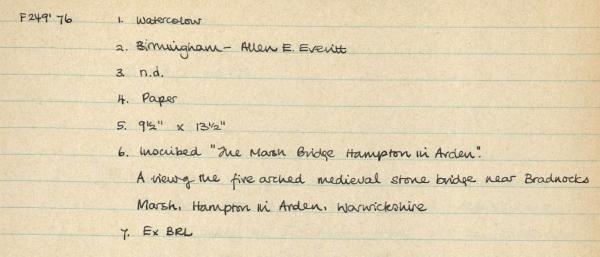 F249'76 1. Watercolour
2. Birmingham - Allen E. Everitt
3. n.d.
4. Paper
5. 9½" x 13½"
6. Inscribed "The Marsh Bridge Hampton in Arden".
A view of the five arched medieval stone bridge near Bradnocks
Marsh, Hampton in Arden, Warwickshire
7. Ex BRL